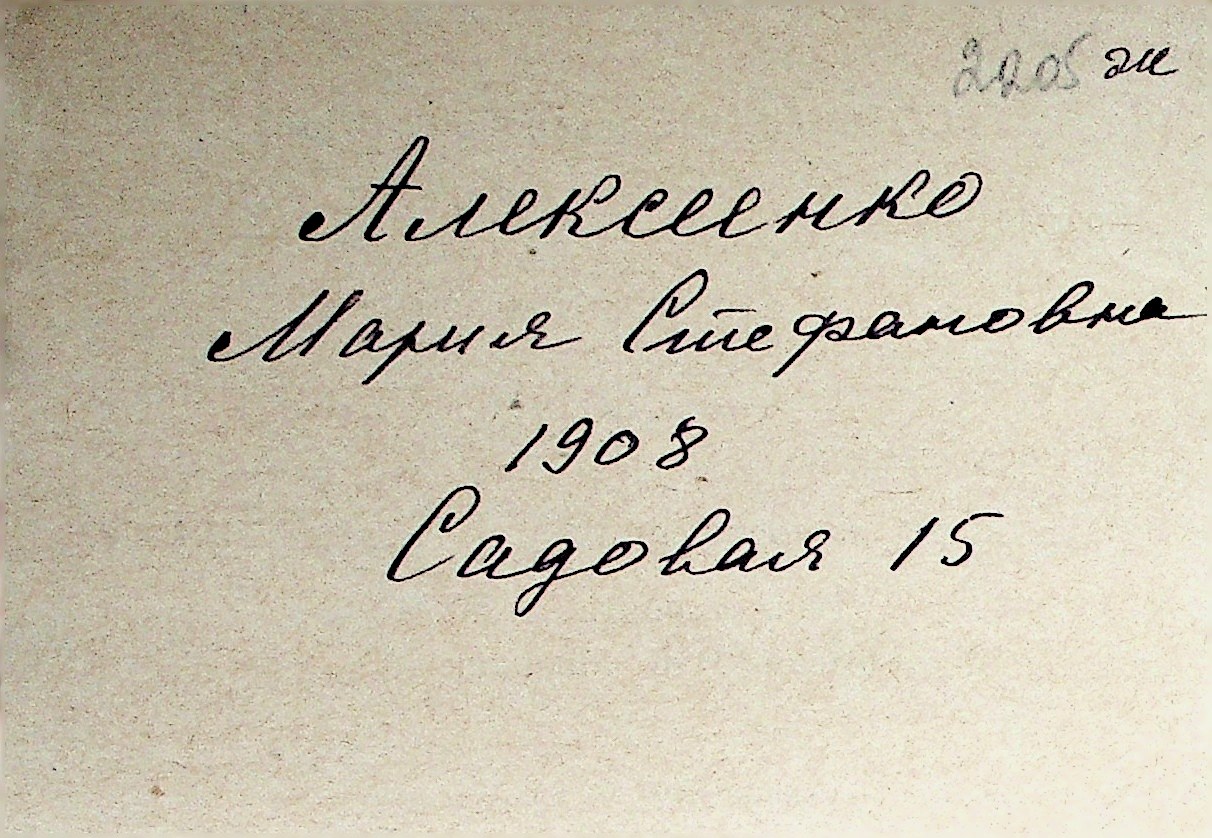 2205 ж
Алексеенко
Мария Стефановна
1908
Садовая 15